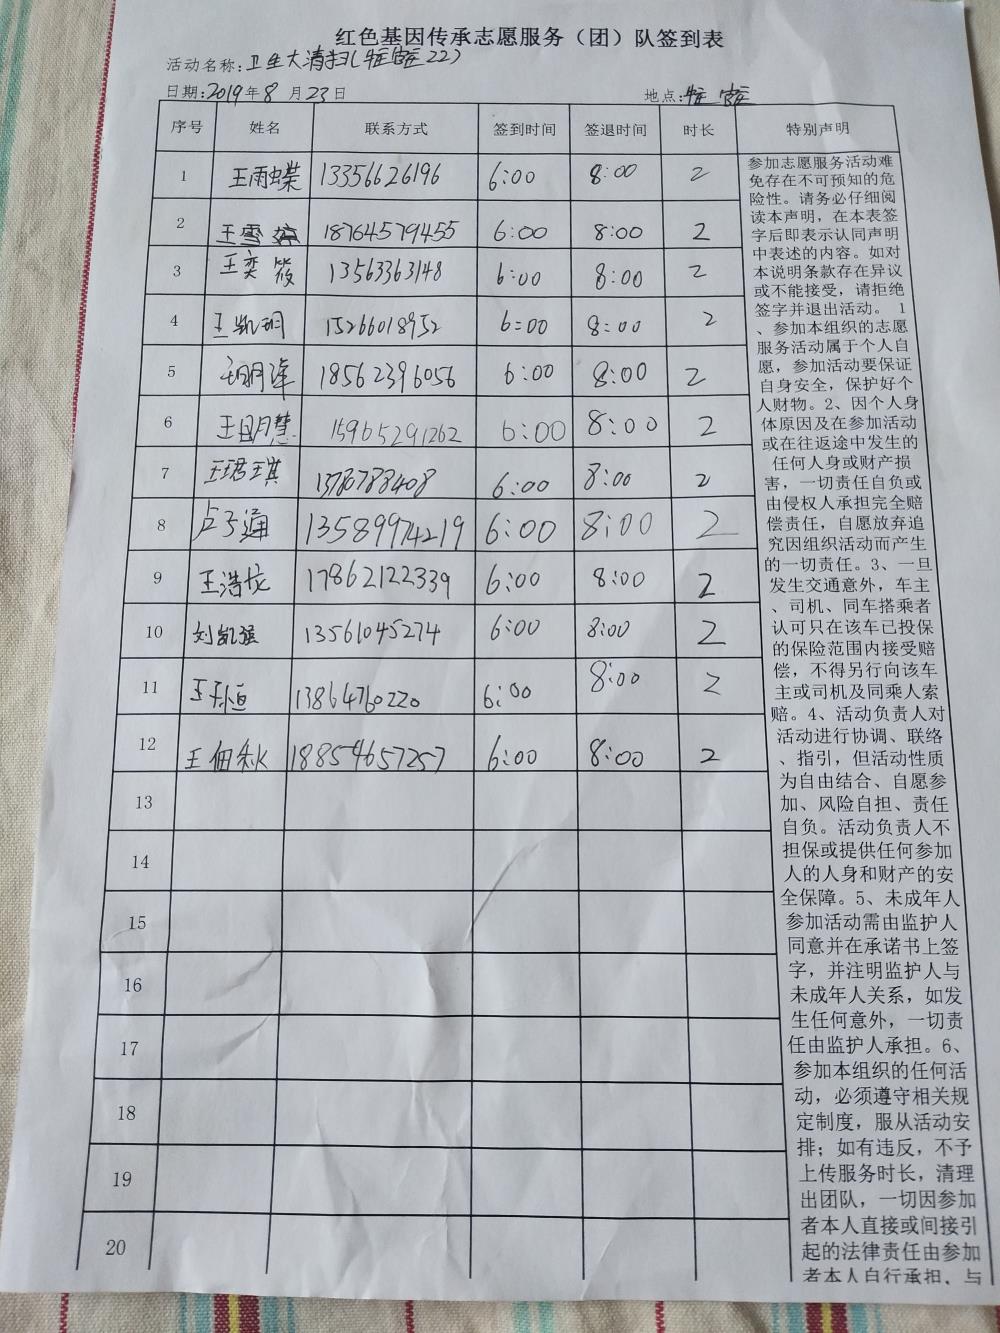 红色基因传承志愿服务（团）队签到表
活动名称:卫生大清扫(
22)
日期:2019年8月23日 地点:
序号 姓名 联系方式 签到时间 签退时间 时长 特别声明
1 王雨蝶 13356626196 6:00 8:00 2
2 王雪婷 18764579455 6:00 8:00 2
3 王奕筱 13563363148 6:00 8:00 2
4 王凯玥 15266018952 6:00 8:00 2
5 18562396056 6:00 8:00 2
6 王明慧 15965291262 6:00 8:00 2
7 王珺琪 13780788408 6:00 8:00 2
8 卢子通 13589974219 6:00 8:00 2
9 王浩 17862122339 6:00 8:00 2
10 刘凯强 13561045274 6:00 8:00 2
11 13864760220 6:00 8:00 2
12 王 18854657257 6:00 8:00 2
13
14
15
16
17
18
19
20
参加志愿服务活动难
免存在不可预知的危
险性。请务必仔细阅
读本声明，在本表签
字后即表示认同声明
中表述的内容。如对
本说明条款存在异议
或不能接受，请拒绝
签字并退出活动。 1
、参加本组织的志愿
服务活动属于个人自
愿，参加活动要保证
自身安全，保护好个
人财物。2、因个人身
体原因及在参加活动
或在往返途中发生的
任何人身或财产损
害，一切责任自负或
由侵权人承担完全赔
偿责任，自愿放弃追
究因组织活动而产生
的一切责任。3、一旦
发生交通意外，车主
、司机、同车搭乘者
认可只在该车已投保
的保险范围内接受赔
偿，不得另行向该车
主或司机及同乘人索
赔。4、活动负责人对
活动进行协调、联络
、指引，但活动性质
为自由结合、自愿参
加、风险自担、责任
自负。活动负责人不
担保或提供任何参加
人的人身和财产的安
全保障。5、未成年人
参加活动需由监护人
同意并在承诺书上签
字，并注明监护人与
未成年人关系，如发
生任何意外，一切责
任由监护人承担。6、
参加本组织的任何活
动，必须遵守相关规
定制度，服从活动安
排；如有违反，不予
上传服务时长，清理
出团队，一切因参加
者本人直接或间接引
起的法律责任由参加
者本人自行承担，与